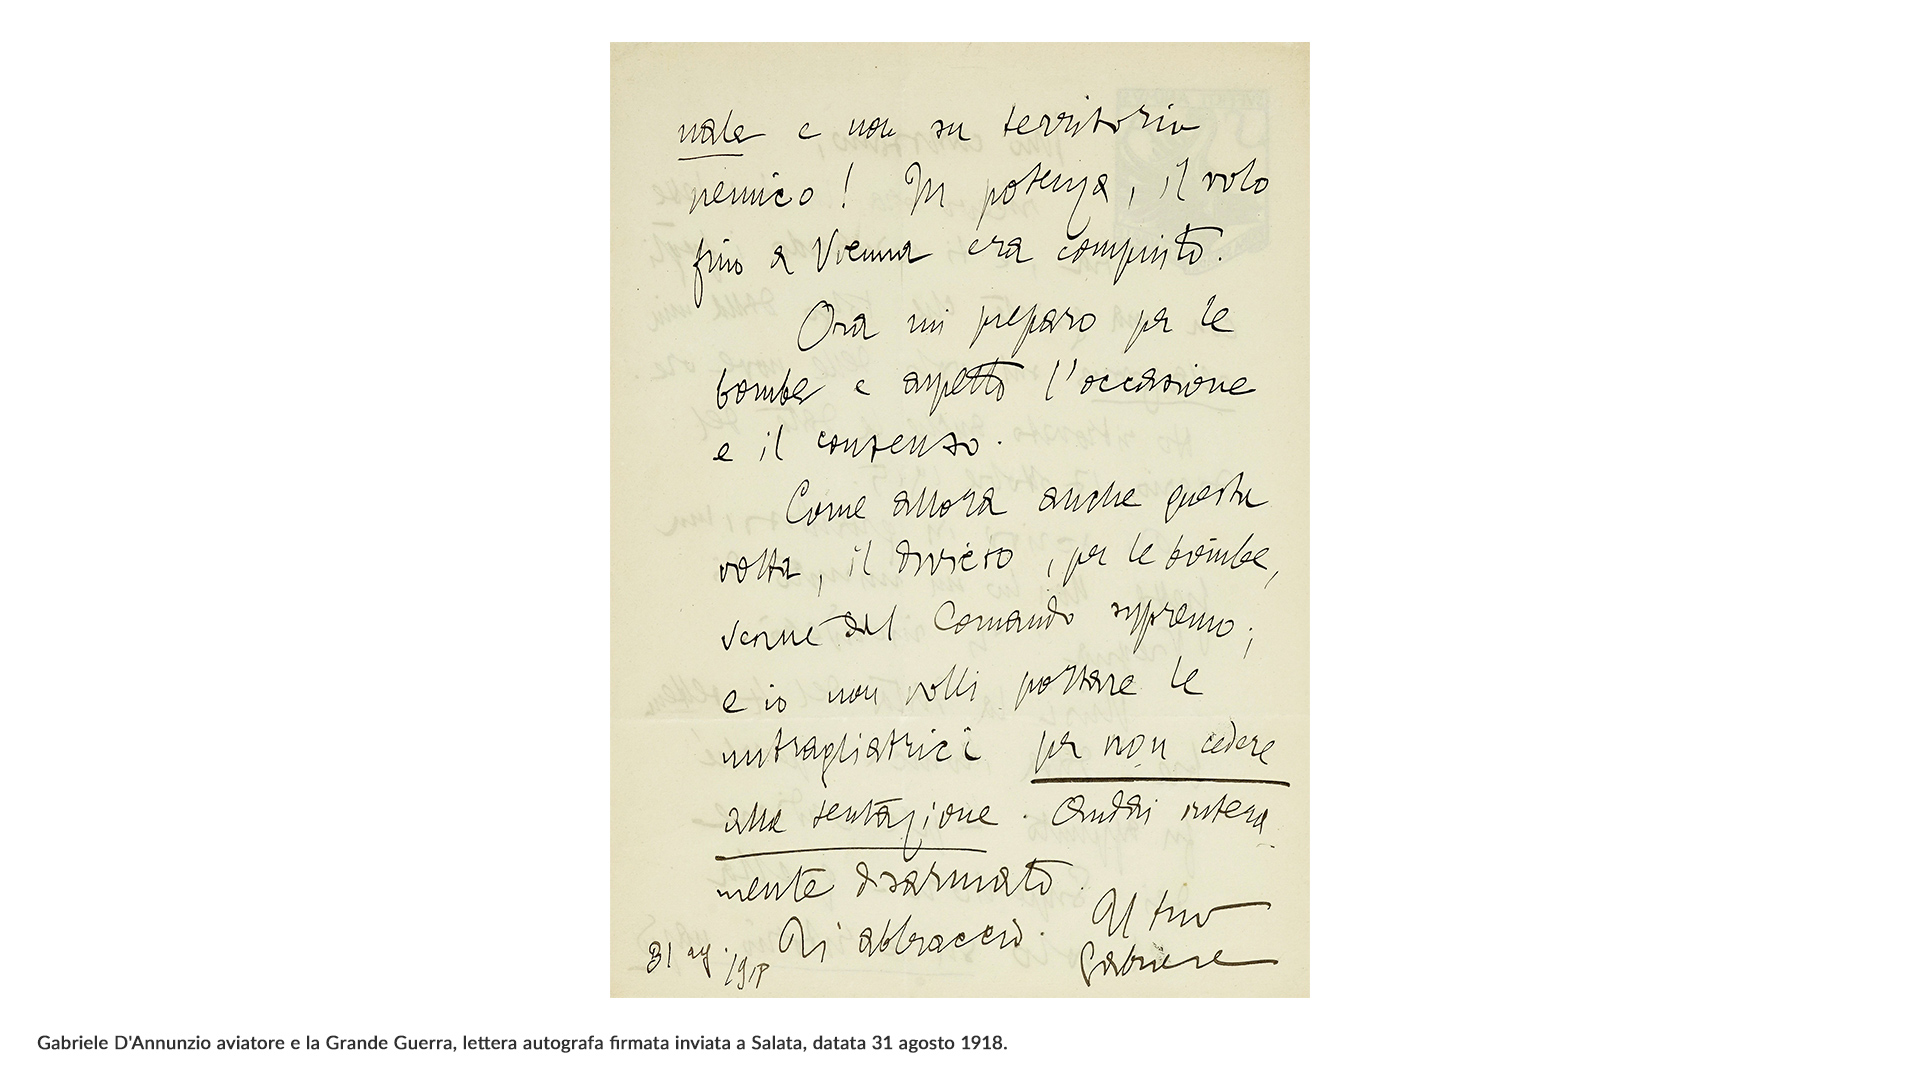 nale e non su territorio
nemico! In potenza, il volo
fino a Vienna era compiuto.
Ora mi preparo per le
bombe e aspetto l'occasione
e il consenso.
Come allora anche questa
volta, il divieto, per le bombe,
venne dal Comando supremo;
e io non volli portare le
mitragliatrici per non cedere
alla tentazione. Andai intera
mente disarmato.
Ti abbraccio. Il tuo
31 ag. 1918 Gabriele
Gabriele D'Annunzio aviatore e la Grande Guerra, lettera autografa firmata inviata a Salata, datata 31 agosto 1918.